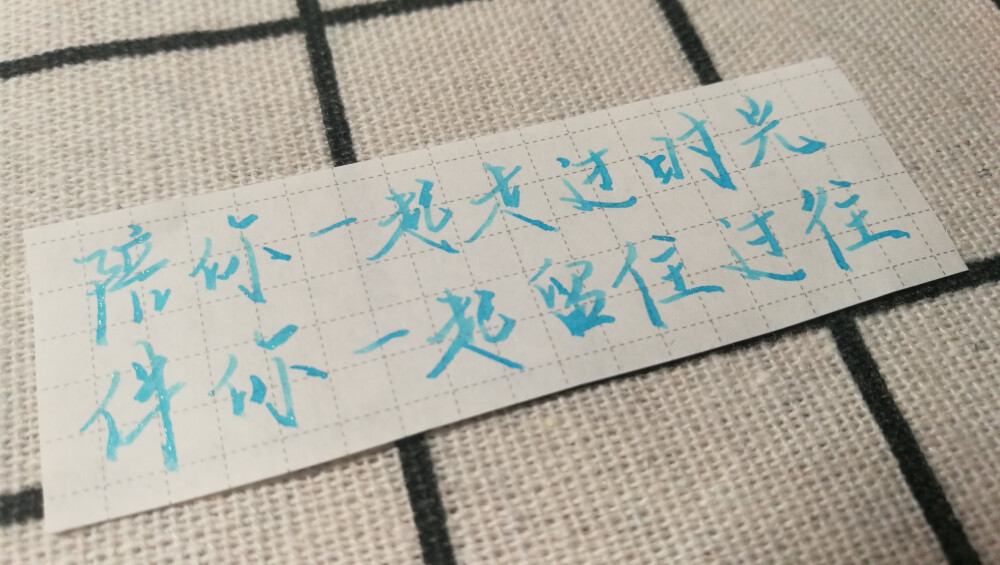 陪你一起走过时光
伴你一起留住过往